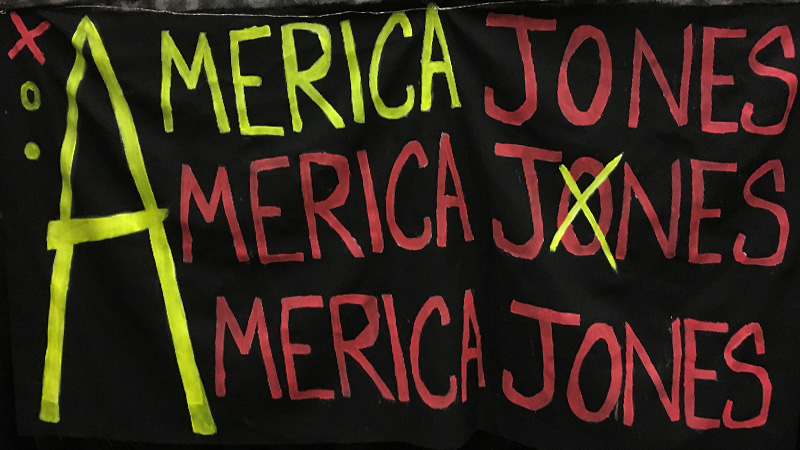 AMERICA JONES
AMERICA JONES
AMERICA JONES